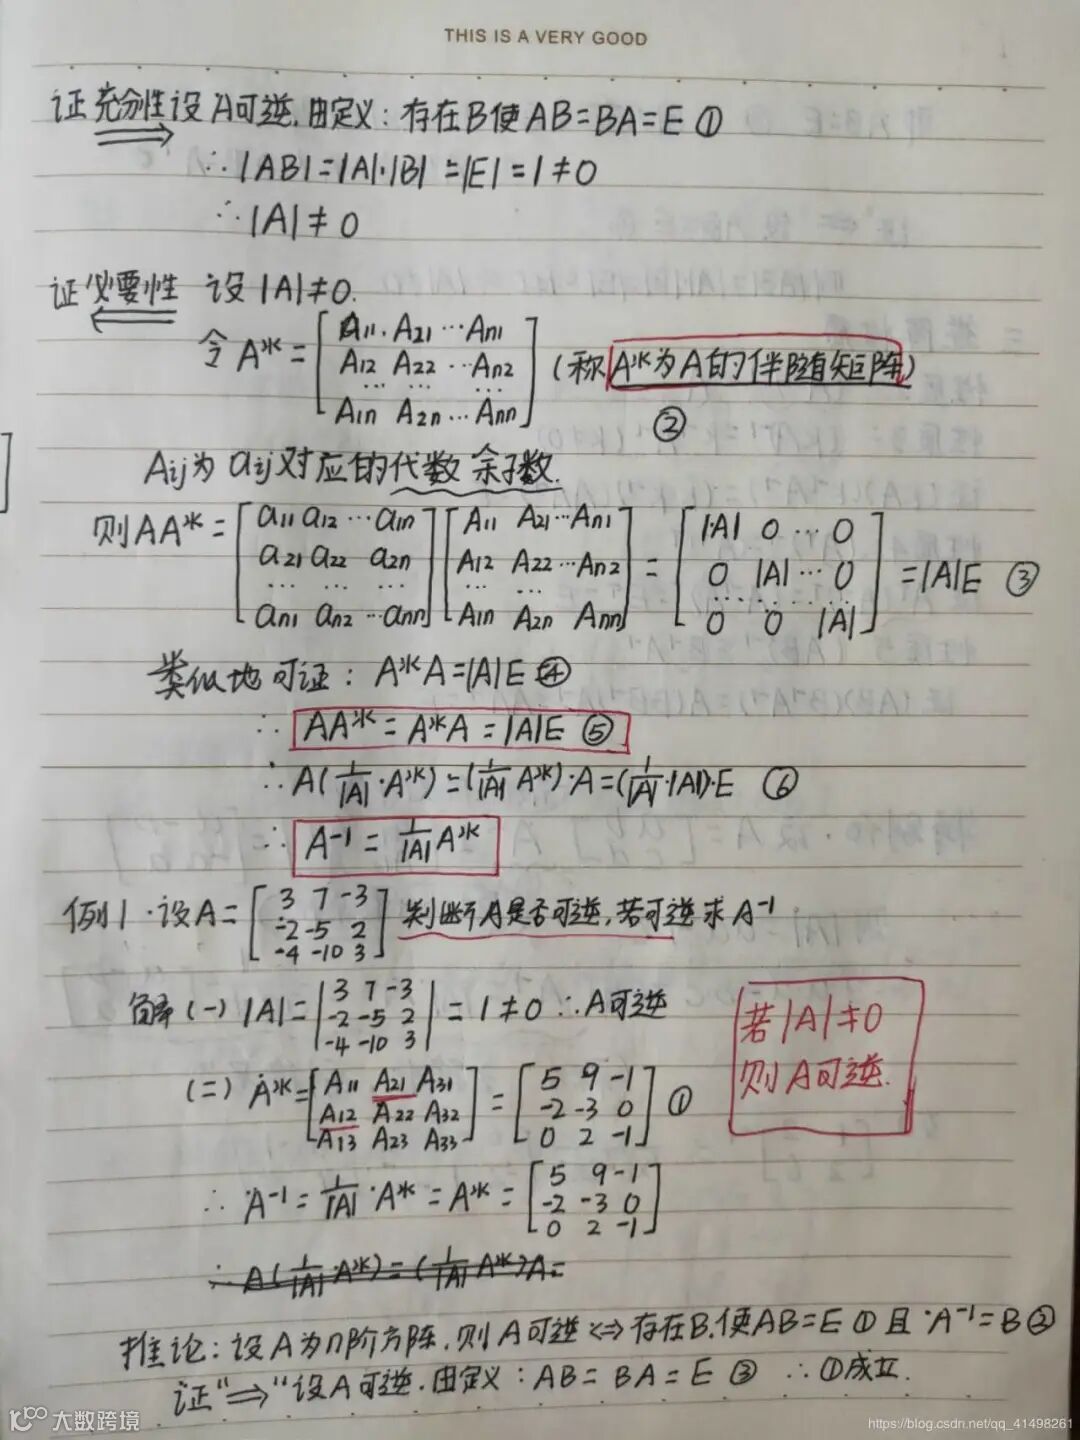 THIS IS A VERY GOOD
证充分性 设A可逆.由定义：存在B使AB=BA=E ①
∴|AB|=|A|·|B|=|E|=1≠0
∴|A|≠0
证必要性 设|A|≠0.
令A*=[A11 A21 ···An1
A12 A22 ···An2
··· ··· ···
A1n A2n ··· Ann] (称A*为A的伴随矩阵) ②
Aij为aij对应的代数余子数.
则AA*=[a11 a12 ··· a1n
a21 a22 a2n
··· ··· ···
an1 an2 ···ann][A11 A21···An1
A12 A22···An2
··· ···
A1n A2n Ann]=[|A| 0 ··· 0
0 |A| ··· 0
·········
0 0 |A|]=|A|E ③
类似地可证：A*A=|A|E ④
∴ AA*=A*A=|A|E ⑤
∴A(1/|A|·A*)=(1/|A| A*)·A=(1/|A|·|A|)·E ⑥
∴ A-1=1/|A| A*
例1.设A=[3 7 -3
-2 -5 2
-4 -10 3] 判断A是否可逆,若可逆求A-1
解(一)|A|=|3 7 -3
-2 -5 2
-4 -10 3|=1≠0 ∴A可逆
若|A|≠0
则A可逆.
(二) A*=[A11 A21 A31
A12 A22 A32
A13 A23 A33]=[5 9 -1
-2 -3 0
0 2 -1] ①
∴A-1=1/|A|·A*=A*=[5 9 -1
-2 -3 0
0 2 -1]
∴A(1/|A|·A*)=(1/|A| A*)A=
推论：设A为n阶方阵.则A可逆<=>存在B.使AB=E①且A-1=B②
证"=>"设A可逆.由定义：AB=BA=E ③ ∴①成立.
大数跨境
https://blog.csdn.net/qq_41498261